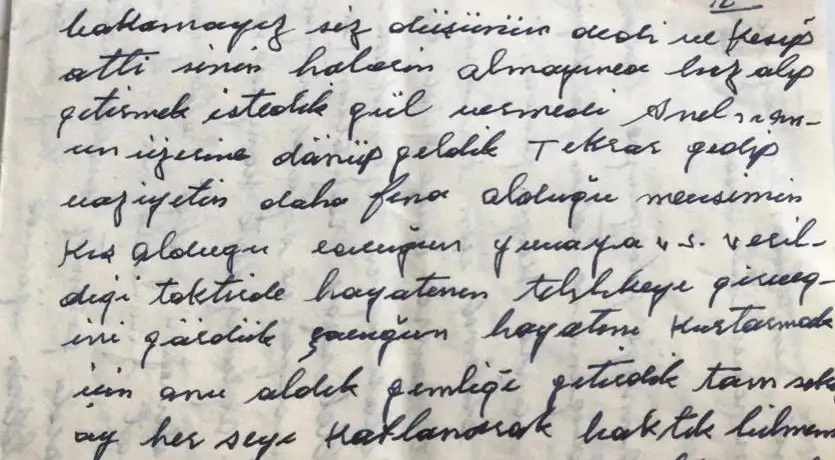 12
bakamayız siz düşünün dedi ve kesip
attı sinin halasın almayınca biz alıp
getirmek istedik gül vermedi
un üzerine dönüp geldik Tekrar gedip
vaziyetin daha fena olduğu mevsimin
Kış olduğu çocuğun yuvaya v.s. veril-
diği taktirde hayatının tehlikeye gireceğ-
ini gördük çocuğun hayatını Kurtarmak
için onu aldık gemliğe getirdik tam
ay her şeye Katlanarak baktık